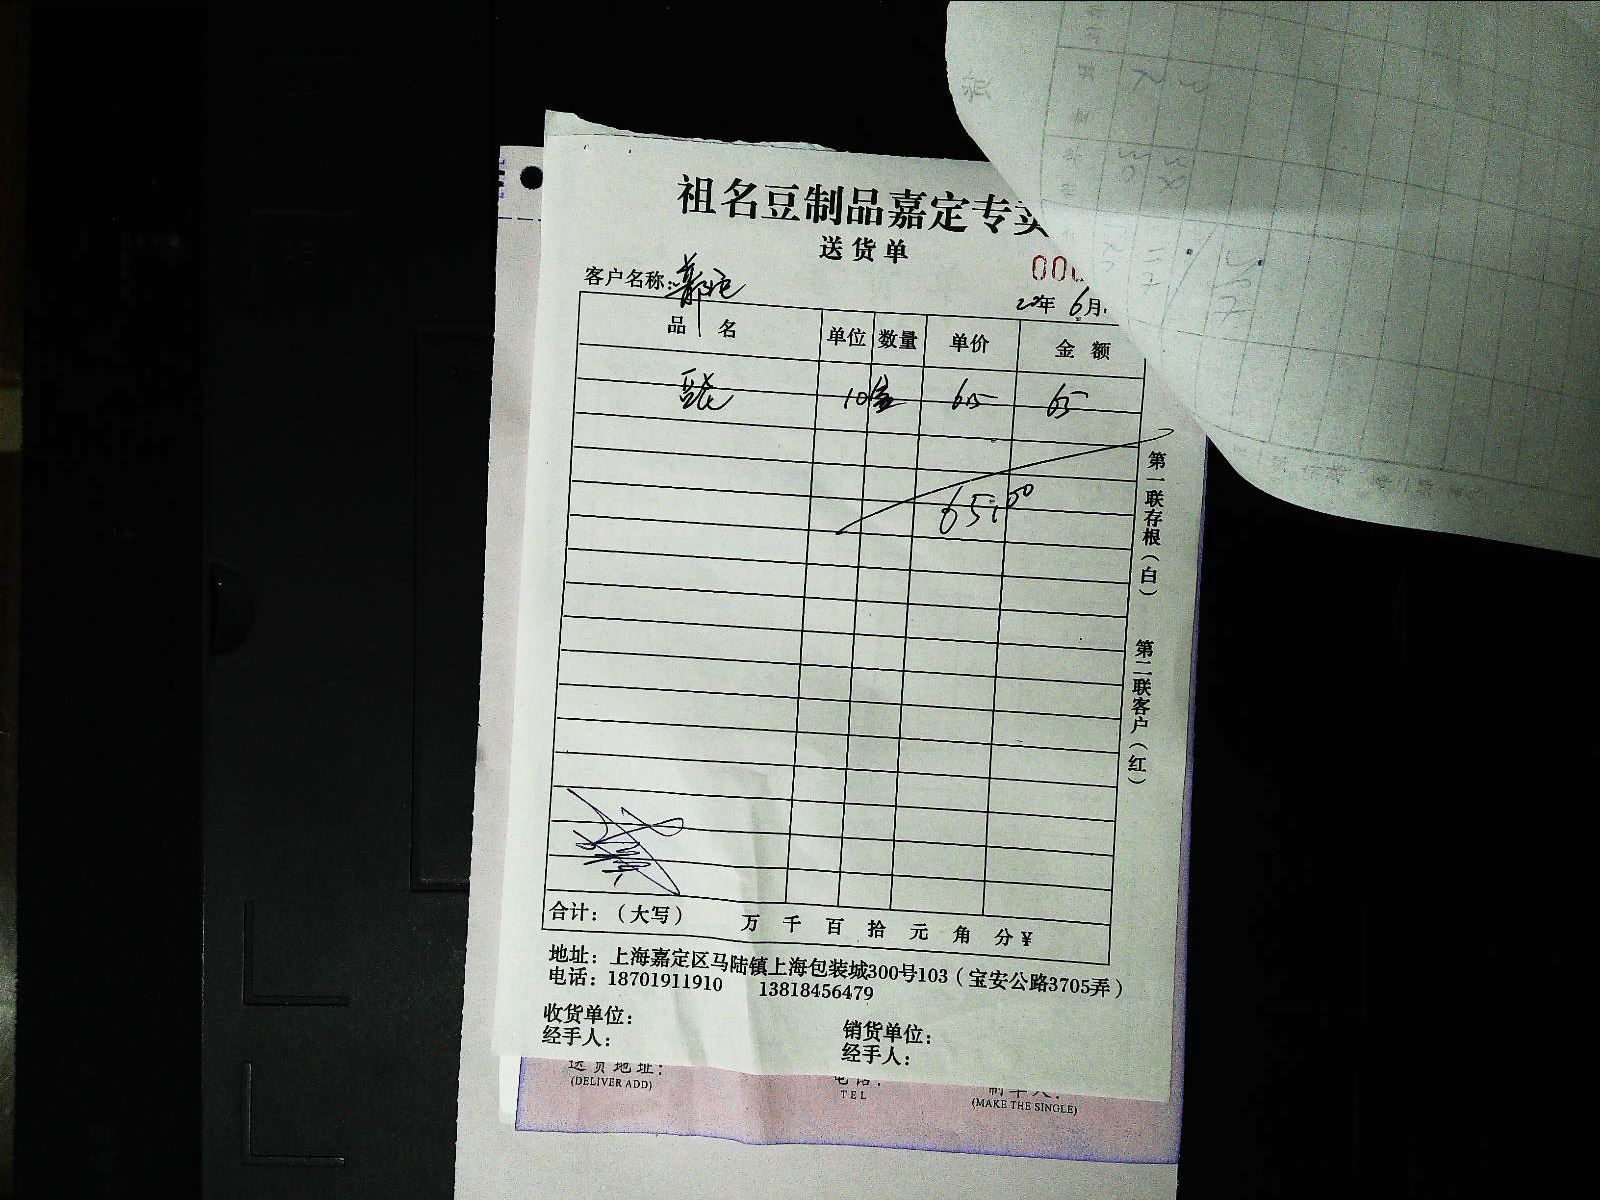 祖名豆制品嘉定专卖
送货单
000
客户名称：
20年 6月
品名 单位 数量 单价 金额
10 6.5 65
65.00
第一联存根（白） 第二联客户（红）
合计：（大写） 万 千 百 拾 元 角 分 ¥
地址：上海嘉定区马陆镇上海包装城300号103（宝安公路3705弄）
电话：18701911910 13818456479
收货单位： 销货单位：
经手人： 经手人：
送货地址： 电话： 制单人：
(DELIVER ADD) TEL (MAKE THE SINGLE)